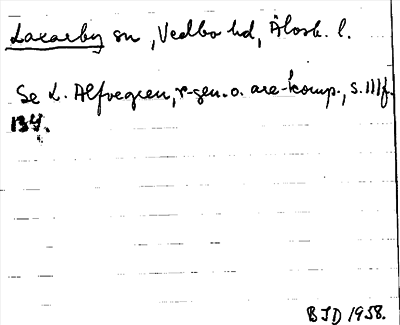 Laxarby sn, Vedbo hd, Älvsb. l.
Se L. Alfvegren, r-gen. o. are-komp., s. 111 f.
134.
BJD 1958.